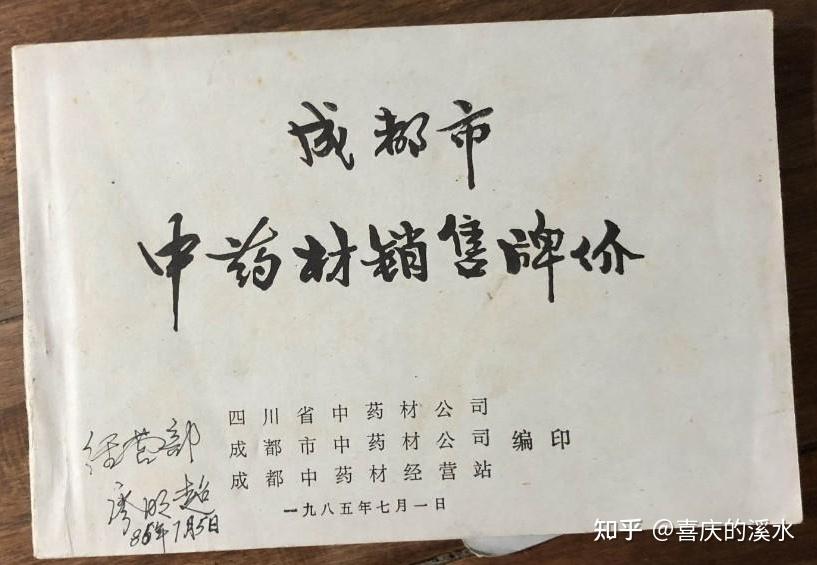 成都市
中药材销售牌价
四川省中药材公司
成都市中药材公司 编印
成都中药材经营站
一九八五年七月一日
经营部
廖明超
86年7月5日
知乎 @喜庆的溪水